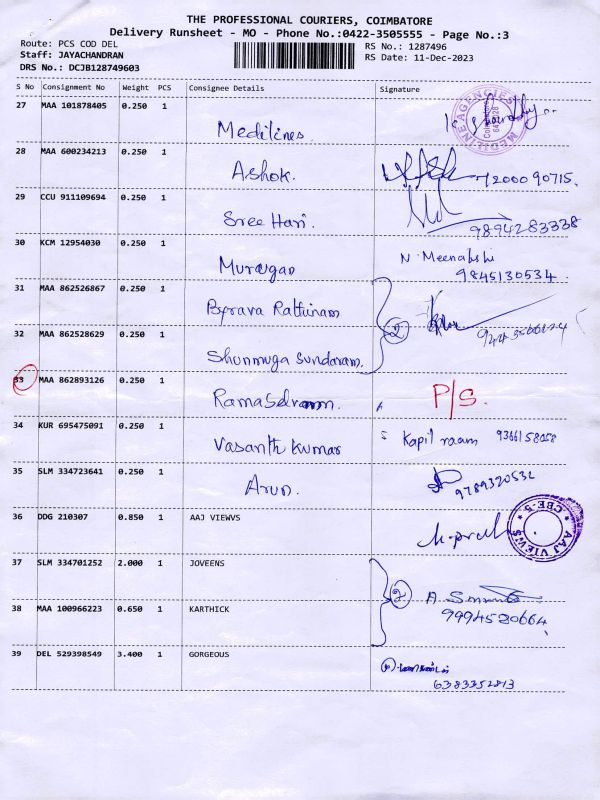 THE PROFESSIONAL COURIERS, COIMBATORE
Delivery Runsheet - MO - Phone No.:0422-3505555 - Page No.:3
Route: PCS COD DEL
RS No.: 1287496
Staff: JAYACHANDRAN
RS Date: 11-Dec-2023
DRS No.: DCJB128749603
S No Consignment No Weight PCS Consignee Details Signature
27 MAA 101878405 0.250 1
Medilines
MEDILINE AGENCIES
28 MAA 600234213 0.250 1
Ashok. 7200090715.
29 CCU 911109694 0.250 1
Sree Hari. 9894283338
30 KCM 12954030 0.250 1
Murugan N. Meenakshi
9845130534.
31 MAA 862526867 0.250 1
Byrava Rathinam
2
32 MAA 862528629 0.250 1
Shunmuga Sundaram.
33 MAA 862893126 0.250 1
P/S.
34 KUR 695475091 0.250 1
Vasanth Kumar Kapil raam
35 SLM 334723641 0.250 1
Arun. 9789320532
36 DDG 210307 0.850 1 AAJ VIEWVS
AAJ VIEWS * CBE-5. *
37 SLM 334701252 2.000 1 JOVEENS
2
38 MAA 100966223 0.650 1 KARTHICK
9994520664
39 DEL 529398549 3.400 1 GORGEOUS
6383352813